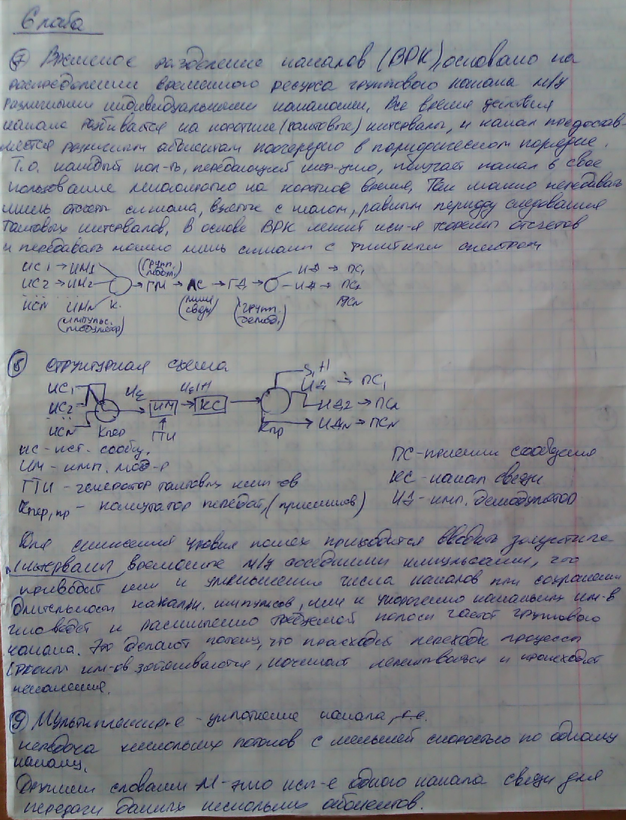 6 лаба
7) Временное разделение каналов (ВРК) основано на
распределении временного ресурса группового канала м/у
различными индивидуальными каналами. Все время условия
канала разбивается на короткие (тактовые) интервалы, и канал предостав-
ляется различным абонентам поочередно в периодическом порядке.
Т.о. каждый пол-ль, передающий инф-цию, получает канал в свое
пользование полностью на короткое время. Так можно передавать
лишь отсчеты сигнала, взятые с шагом, равным периоду следования
тактовых интервалов. В основе ВРК лежит исп-я теоремы отсчетов
и передавать можно лишь сигналы с финитным спектром
ИС1 → ИМ1 (групп. мод.) ИД → ПС1
ИС2 → ИМ2 → ГМ → ЛС → ГД → ИД → ПС2
ИСN ИМN К. (линия связи) (групп. демод.) ПСN
(импульс. модулятор)
8) Структурная схема
ИС1 ИД1 → ПС1
ИС2 ИМ → КС ИД2 → ПС2
ИСN Кпер ГТИ Кпр ИДN → ПСN
ИС - ист. сообщ. ПС - приемник сообщения
ИМ - имп. мод-р КС - канал связи
ГТИ - генератор тактовых имп-ов ИД - имп. демодулятор
Кпер, пр - коммутатор передат. (приемников)
Для снижения уровня помех приходится вводить защитные
интервалы временные м/у соседними импульсами, что
приводит или к уменьшению числа каналов при сохранении
длительности канальн. импульсов, или к укорочению канальных им-в
что ведет к расширению требуемой полосы частот группового
канала. Это делают потому, что происходят переходн. процессы
фронты им-ов затягиваются, начинают перекрываться и происходят
искажения.
9) Мультиплексир-е - уплотнение канала, т.е.
передача нескольких потоков с меньшей скоростью по одному
каналу.
Другими словами М - это исп-е одного канала связи для
передачи данных нескольких абонентов.